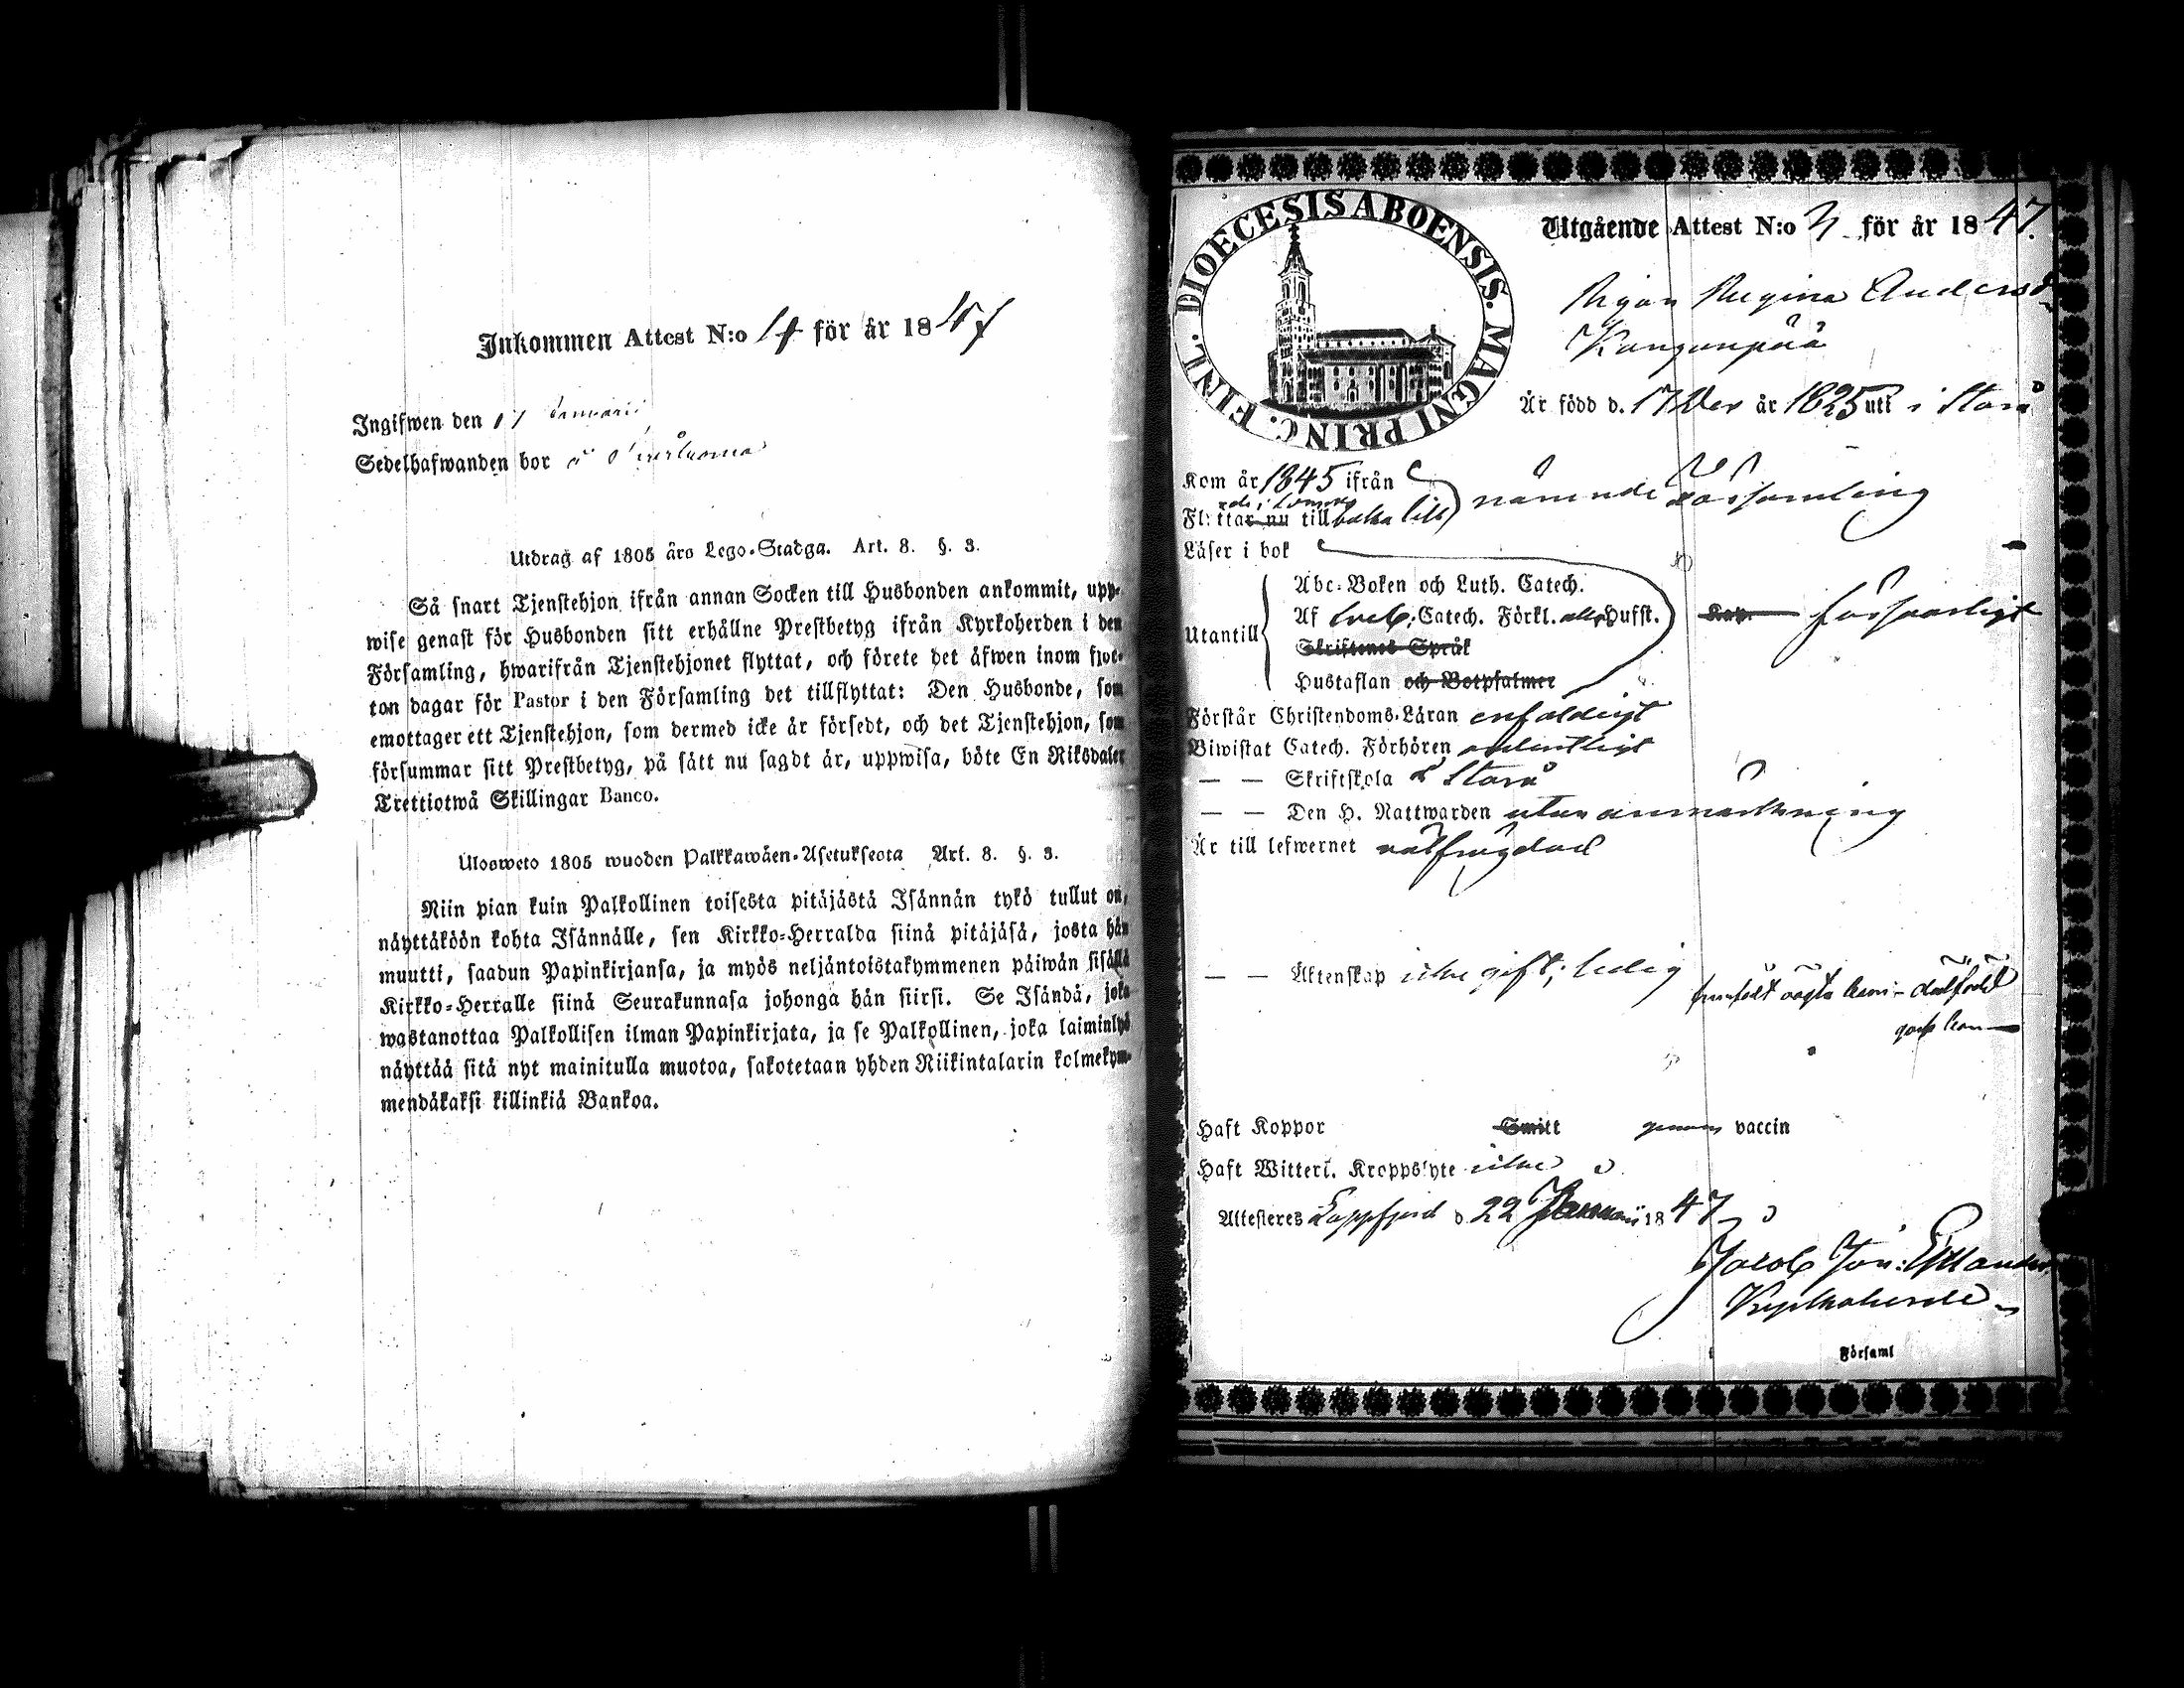 Inkommen Attest N:o 14 för år 1847
Ingifwen den 17 Januarii
Sedelhafwanden bor
Utdrag af 1805 års Lego-Stadga. Art. 8. §. 3.
Så snart Tjenstehjon ifrån annan Socken till Husbonden ankommit, upp-
wise genast för Husbonden sitt erhållne Prestbetyg ifrån Kyrkoherden i den
Församling, hwarifrån Tjenstehjonet flyttat, och förete det äfwen inom fjor-
ton dagar för Pastor i den Församling det tillflyttat: Den Husbonde, som
emottager ett Tjenstehjon, som dermed icke är försedt, och det Tjenstehjon, som
försummar sitt Prestbetyg, på sätt nu sagdt är, uppwisa, böte En Riksdaler
Trettiotwå Skillingar Banco.
Ulosweto 1805 wuoden Palkkawäen-Asetuksesta Art. 8. §. 3.
Niin pian kuin Palkollinen toisesta pitäjästä Isännän tykö tullut on,
näyttäköön kohta Isännälle, sen Kirkko-Herralda siinä pitäjäsä, josta hän
muutti, saadun Papinkirjansa, ja myös neljäntoistakymmenen päiwän sisällä
Kirkko-Herralle siinä Seurakunnasa johonga hän siirsi. Se Isändä, joka
wastanottaa Palkollisen ilman Papinkirjata, ja se Palkollinen, joka laiminlyö
näyttää sitä nyt mainitulla muotoa, sakotetaan yhden Riikintalarin kolmekym-
mendäkaksi killinkiä Bankoa.
DIOECESIS ABOENSIS. MAGNI PRINC. FINL.
Utgående Attest N:o 3 för år 1847.
Pigan Regina Andersd:r
Kanganpää
Är född d. 17 Dec år 1825 uti i Storå
Kom år 1845 ifrån
Flyttar nu tillbaka till nämnde Församling
Läser i bok
Abc-Boken och Luth. Catech.
Utantill Af Catech. Förkl. alla Hufst. försvarligt
Skriftenes Språk
Hustaflan och Botpsalmer
Förstår Christendoms-Läran enfaldigt
Biwistat Catech. Förhören ordentligt
— — Skriftskola i Storå
— — Den H. Nattwarden utan anmärkning
Är till lefwernet välfrägdad
— — Äktenskap icke gift; ledig
Haft Koppor Smitt genom vaccin
Haft Witterl. Kroppslyte icke
Attesteres Lappfjerd d 22 Januarii 1847
Jacob Jon:
Kyrkoherde
Församl